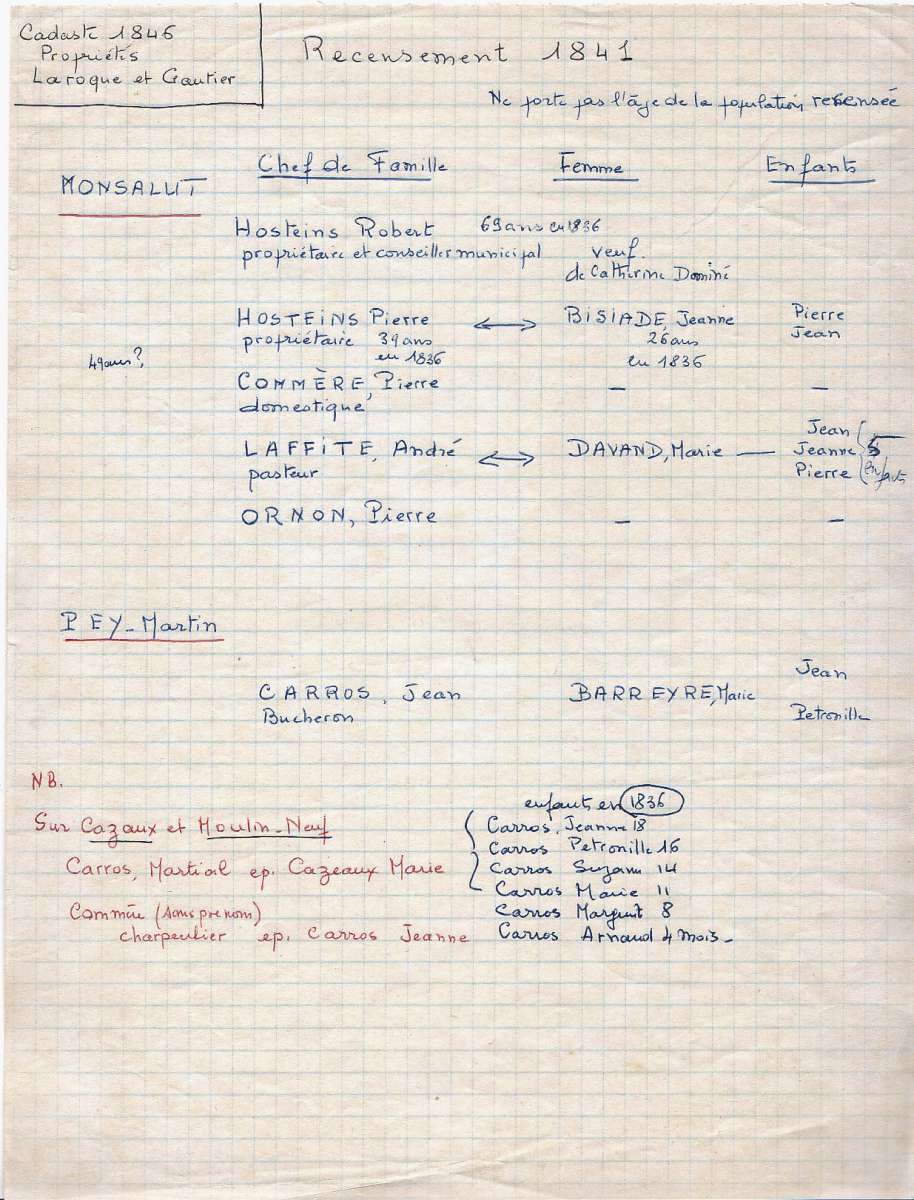 Cadastre 1846
Propriétés
Laroque et Gautier
Recensement 1841
Ne porte pas l'âge de la population recensée
Chef de Famille Femme Enfants
MONSALUT
Hosteins Robert 69 ans en 1836
propriétaire et conseiller municipal veuf
de Catherine Dominé
HOSTEINS Pierre ⟷ BISIADE, Jeanne Pierre
propriétaire 39 ans 26 ans Jean
en 1836 en 1836
49 ans?
COMMÈRE, Pierre — —
domestique
Jean
LAFFITE, André ⟷ DAVAND, Marie — Jeanne 5
pasteur Pierre enfants
ORNON, Pierre — —
PEY-Martin
Jean
CARROS, Jean BARREYRE, Marie
Bucheron Petronille
NB.
enfants en 1836
Sur Cazaux et Moulin-Neuf Carros, Jeanne 18
Carros Petronille 16
Carros, Martial ep. Cazeaux Marie Carros Suzanne 14
Carros Marie 11
Commère (sans prenom) Carros Margerit 8
charpentier ep. Carros Jeanne Carros Arnaud 4 mois -